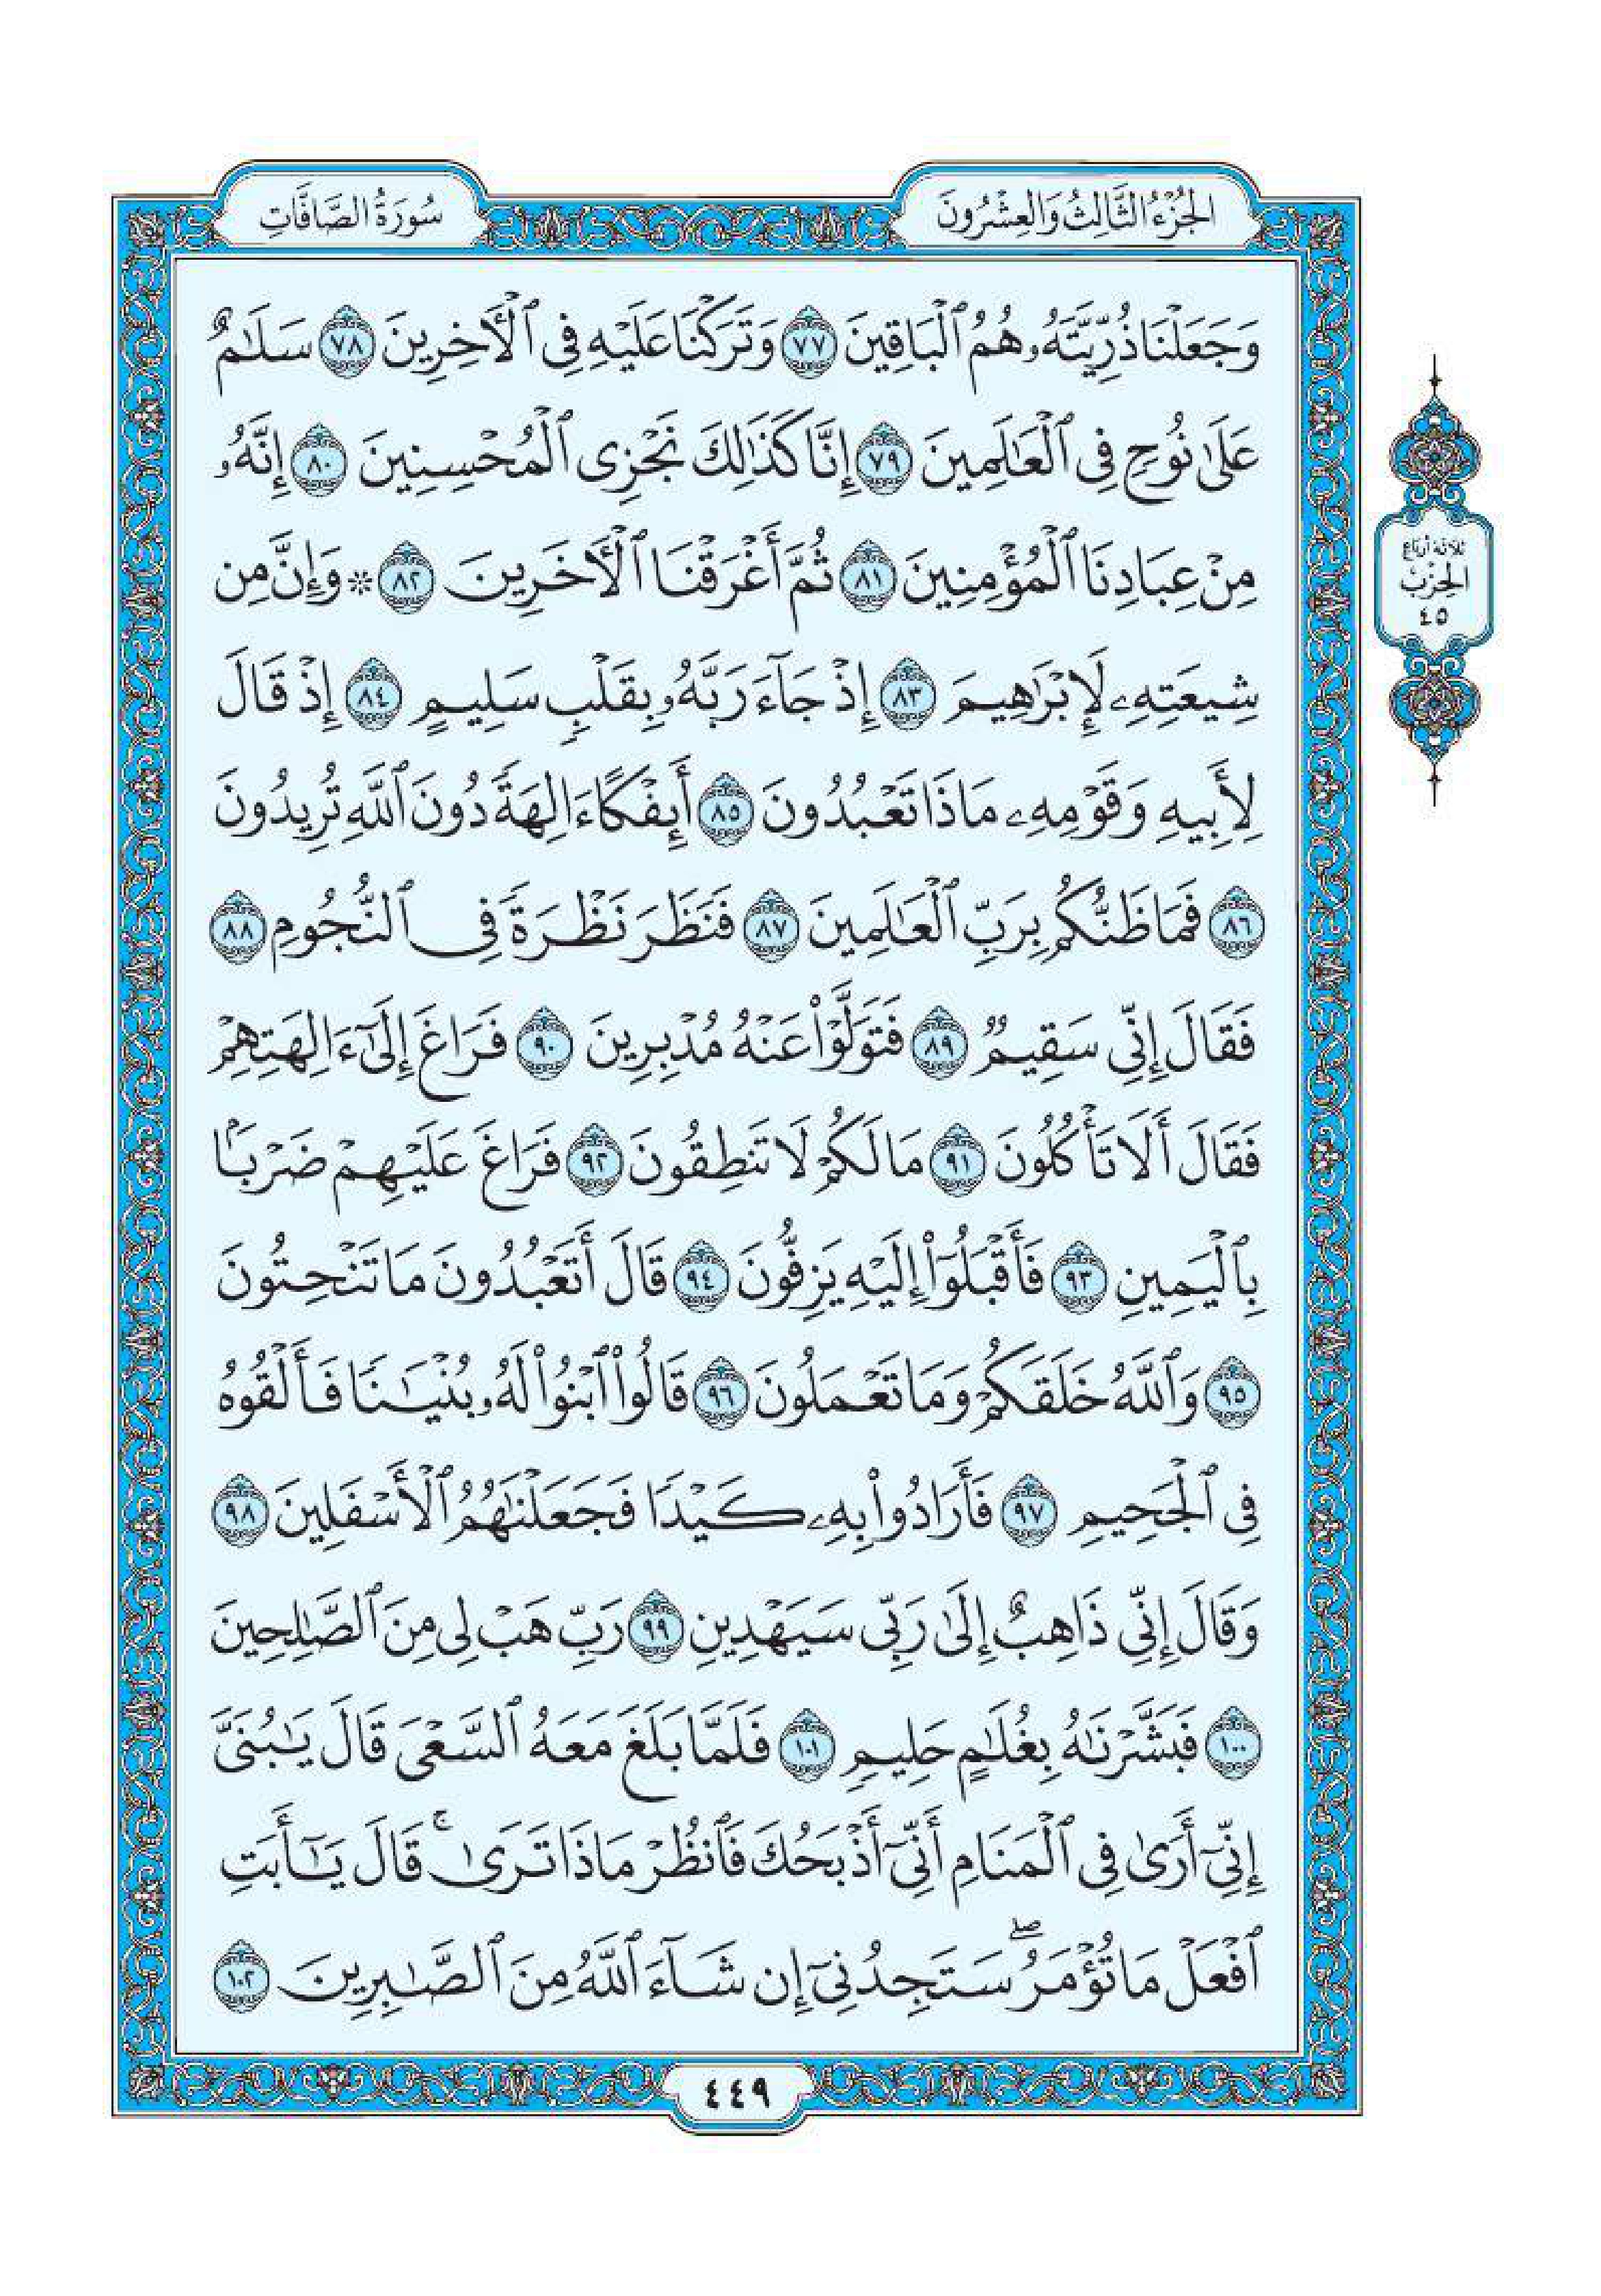 الجُزْءُ الثَّالِثُ وَالعِشْرُونَ
سُورَةُ الصَّافَّاتِ
وَجَعَلۡنَا ذُرِّيَّتَهُۥ هُمُ ٱلۡبَاقِينَ ٧٧ وَتَرَكۡنَا عَلَيۡهِ فِي ٱلۡأٓخِرِينَ ٧٨ سَلَٰمٌ
عَلَىٰ نُوحٖ فِي ٱلۡعَٰلَمِينَ ٧٩ إِنَّا كَذَٰلِكَ نَجۡزِي ٱلۡمُحۡسِنِينَ ٨٠ إِنَّهُۥ
مِنۡ عِبَادِنَا ٱلۡمُؤۡمِنِينَ ٨١ ثُمَّ أَغۡرَقۡنَا ٱلۡأٓخَرِينَ ٨٢ ۞ وَإِنَّ مِن
شِيعَتِهِۦ لَإِبۡرَٰهِيمَ ٨٣ إِذۡ جَآءَ رَبَّهُۥ بِقَلۡبٖ سَلِيمٍ ٨٤ إِذۡ قَالَ
لِأَبِيهِ وَقَوۡمِهِۦ مَاذَا تَعۡبُدُونَ ٨٥ أَئِفۡكًا ءَالِهَةٗ دُونَ ٱللَّهِ تُرِيدُونَ
٨٦ فَمَا ظَنُّكُم بِرَبِّ ٱلۡعَٰلَمِينَ ٨٧ فَنَظَرَ نَظۡرَةٗ فِي ٱلنُّجُومِ ٨٨
فَقَالَ إِنِّي سَقِيمٞ ٨٩ فَتَوَلَّوۡاْ عَنۡهُ مُدۡبِرِينَ ٩٠ فَرَاغَ إِلَىٰٓ ءَالِهَتِهِمۡ
فَقَالَ أَلَا تَأۡكُلُونَ ٩١ مَا لَكُمۡ لَا تَنطِقُونَ ٩٢ فَرَاغَ عَلَيۡهِمۡ ضَرۡبَۢا
بِٱلۡيَمِينِ ٩٣ فَأَقۡبَلُوٓاْ إِلَيۡهِ يَزِفُّونَ ٩٤ قَالَ أَتَعۡبُدُونَ مَا تَنۡحِتُونَ
٩٥ وَٱللَّهُ خَلَقَكُمۡ وَمَا تَعۡمَلُونَ ٩٦ قَالُواْ ٱبۡنُواْ لَهُۥ بُنۡيَٰنٗا فَأَلۡقُوهُ
فِي ٱلۡجَحِيمِ ٩٧ فَأَرَادُواْ بِهِۦ كَيۡدٗا فَجَعَلۡنَٰهُمُ ٱلۡأَسۡفَلِينَ ٩٨
وَقَالَ إِنِّي ذَاهِبٌ إِلَىٰ رَبِّي سَيَهۡدِينِ ٩٩ رَبِّ هَبۡ لِي مِنَ ٱلصَّٰلِحِينَ
١٠٠ فَبَشَّرۡنَٰهُ بِغُلَٰمٍ حَلِيمٖ ١٠١ فَلَمَّا بَلَغَ مَعَهُ ٱلسَّعۡيَ قَالَ يَٰبُنَيَّ
إِنِّيٓ أَرَىٰ فِي ٱلۡمَنَامِ أَنِّيٓ أَذۡبَحُكَ فَٱنظُرۡ مَاذَا تَرَىٰۚ قَالَ يَٰٓأَبَتِ
ٱفۡعَلۡ مَا تُؤۡمَرُۖ سَتَجِدُنِيٓ إِن شَآءَ ٱللَّهُ مِنَ ٱلصَّٰبِرِينَ ١٠٢
ثلاثة أرباع
الحِزْب
٤٥
٤٤٩